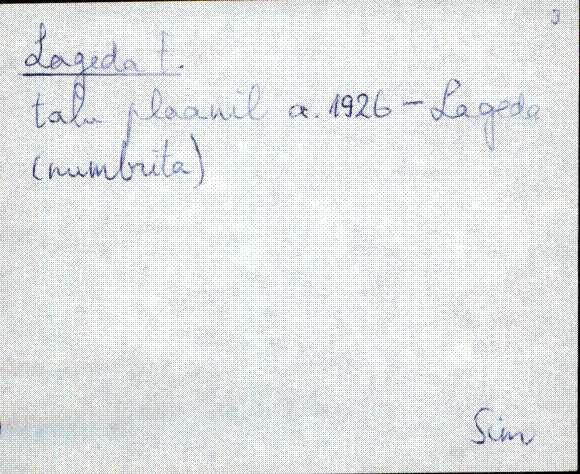 3
Lageda t.
talu plaanil a. 1926 – Lageda
(numbrita)
Sim